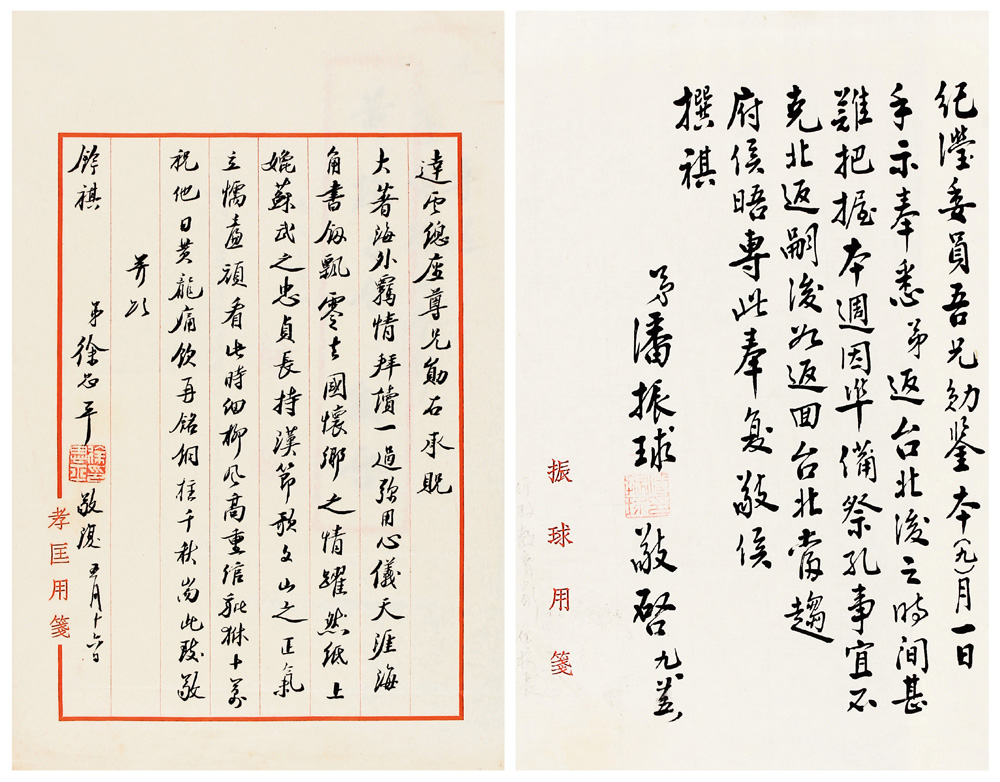 紀瀅委員吾兄勛鑒本(九)月一日
手示奉悉弟返台北後之時间甚
難把握本週因準備祭孔事宜不
克北返嗣後如返回台北當趨
府候晤專此奉复敬候
撰祺
弟潘振球敬啓
振球用箋
達雲總座尊兄勛右承貺
大著海外羈情拜讀一過弥用心儀天涯海
角書劔飄零去國懷鄉之情躍然紙上
媲蘇武之忠貞長持漢節歌文山之正氣
立懦廉頑看此時細柳風高重綰貔貅十萬
祝他日黃龍痛飲再銘銅柱千秋耑此致敬
並頌
鈐祺
弟徐思平敬復五月十六日
孝匡用箋